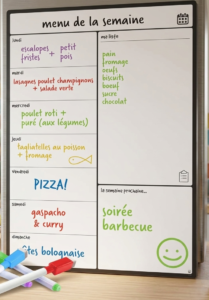 menu de la semaine
lundi
escalopes + petit
frites pois
mardi
lasagnes poulet champignons
+ salade verte
mercredi
poulet roti +
puré (aux légumes)
jeudi
tagliatelles au poisson
+ fromage
vendredi
PIZZA!
samedi
gaspacho
& curry
dimanche
tes bolognaise
ma liste
pain
fromage
oeufs
biscuits
boeuf
sucre
chocolat
la semaine prochaine...
soirée
barbecue